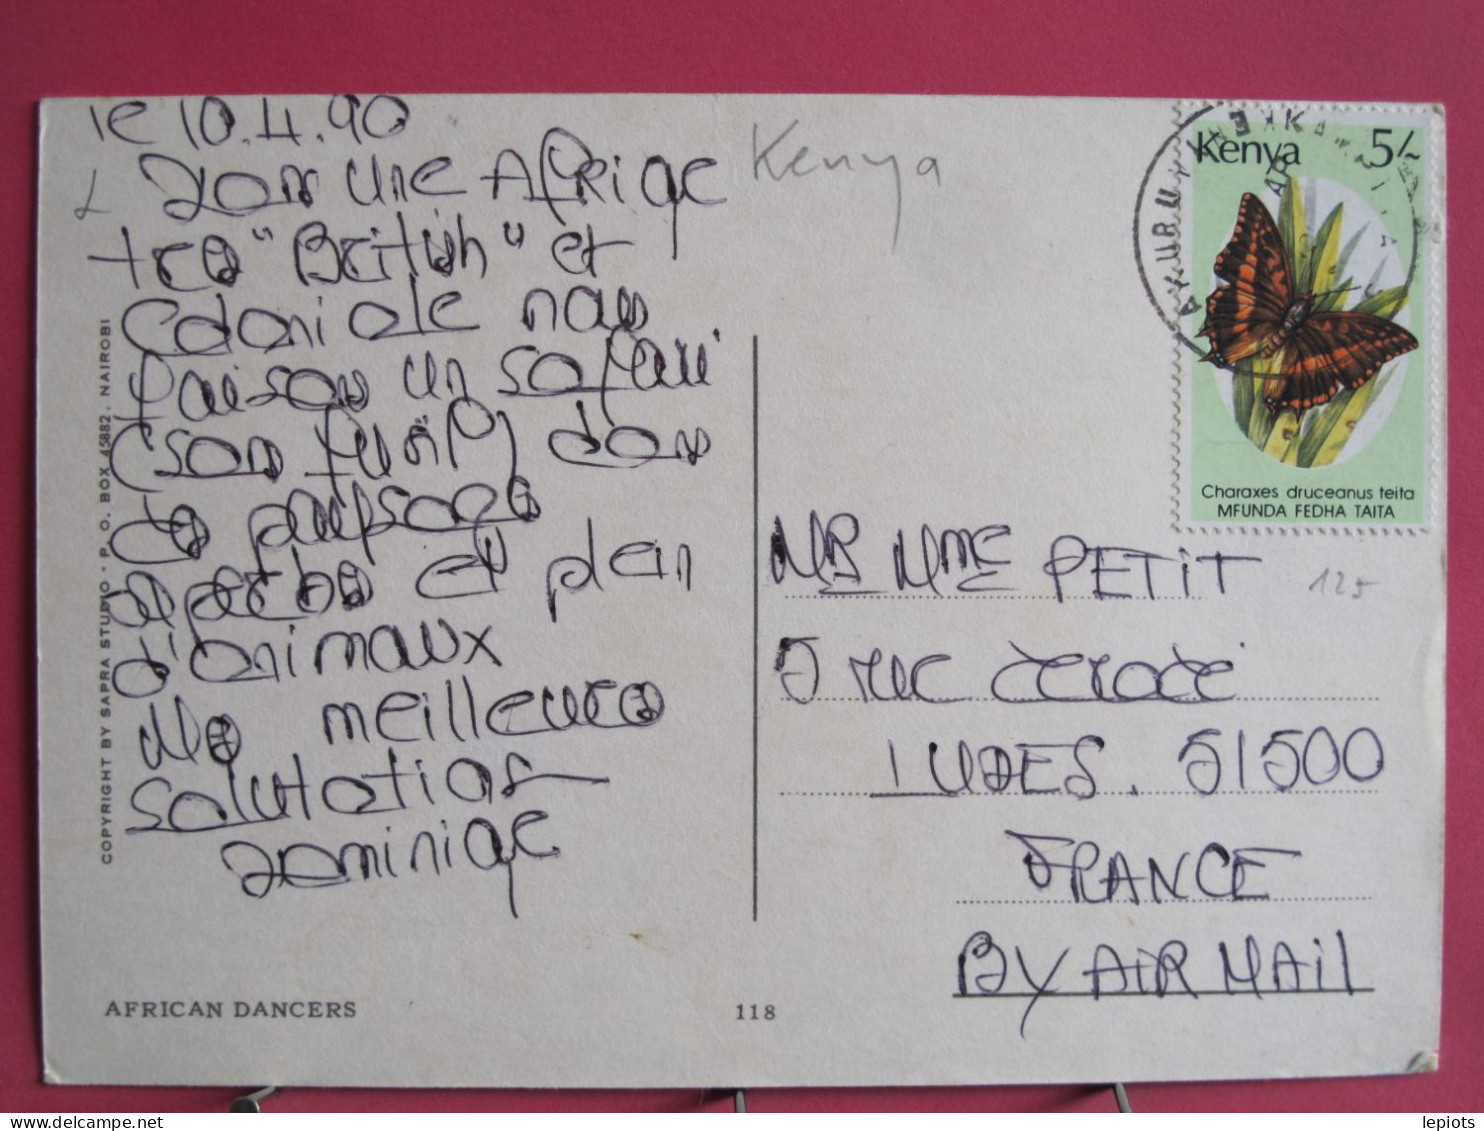 le 10.4.90
Dans une Afrique
très "British" et
Coloniale nous
faisons un safari
(sans fusil) dans
des paysages
superbes et plein
d'animaux
Mes meilleures
salutations
Dominique
Kenya
COPYRIGHT BY SAPRA STUDIO · P. O. BOX 45882. NAIROBI
AFRICAN DANCERS
118
Kenya 5/-
Charaxes druceanus teita
MFUNDA FEDHA TAITA
MR MME PETIT
125
5 rue
LUDES. 51500
FRANCE
BY AIR MAIL
lepiots
delcampe.net